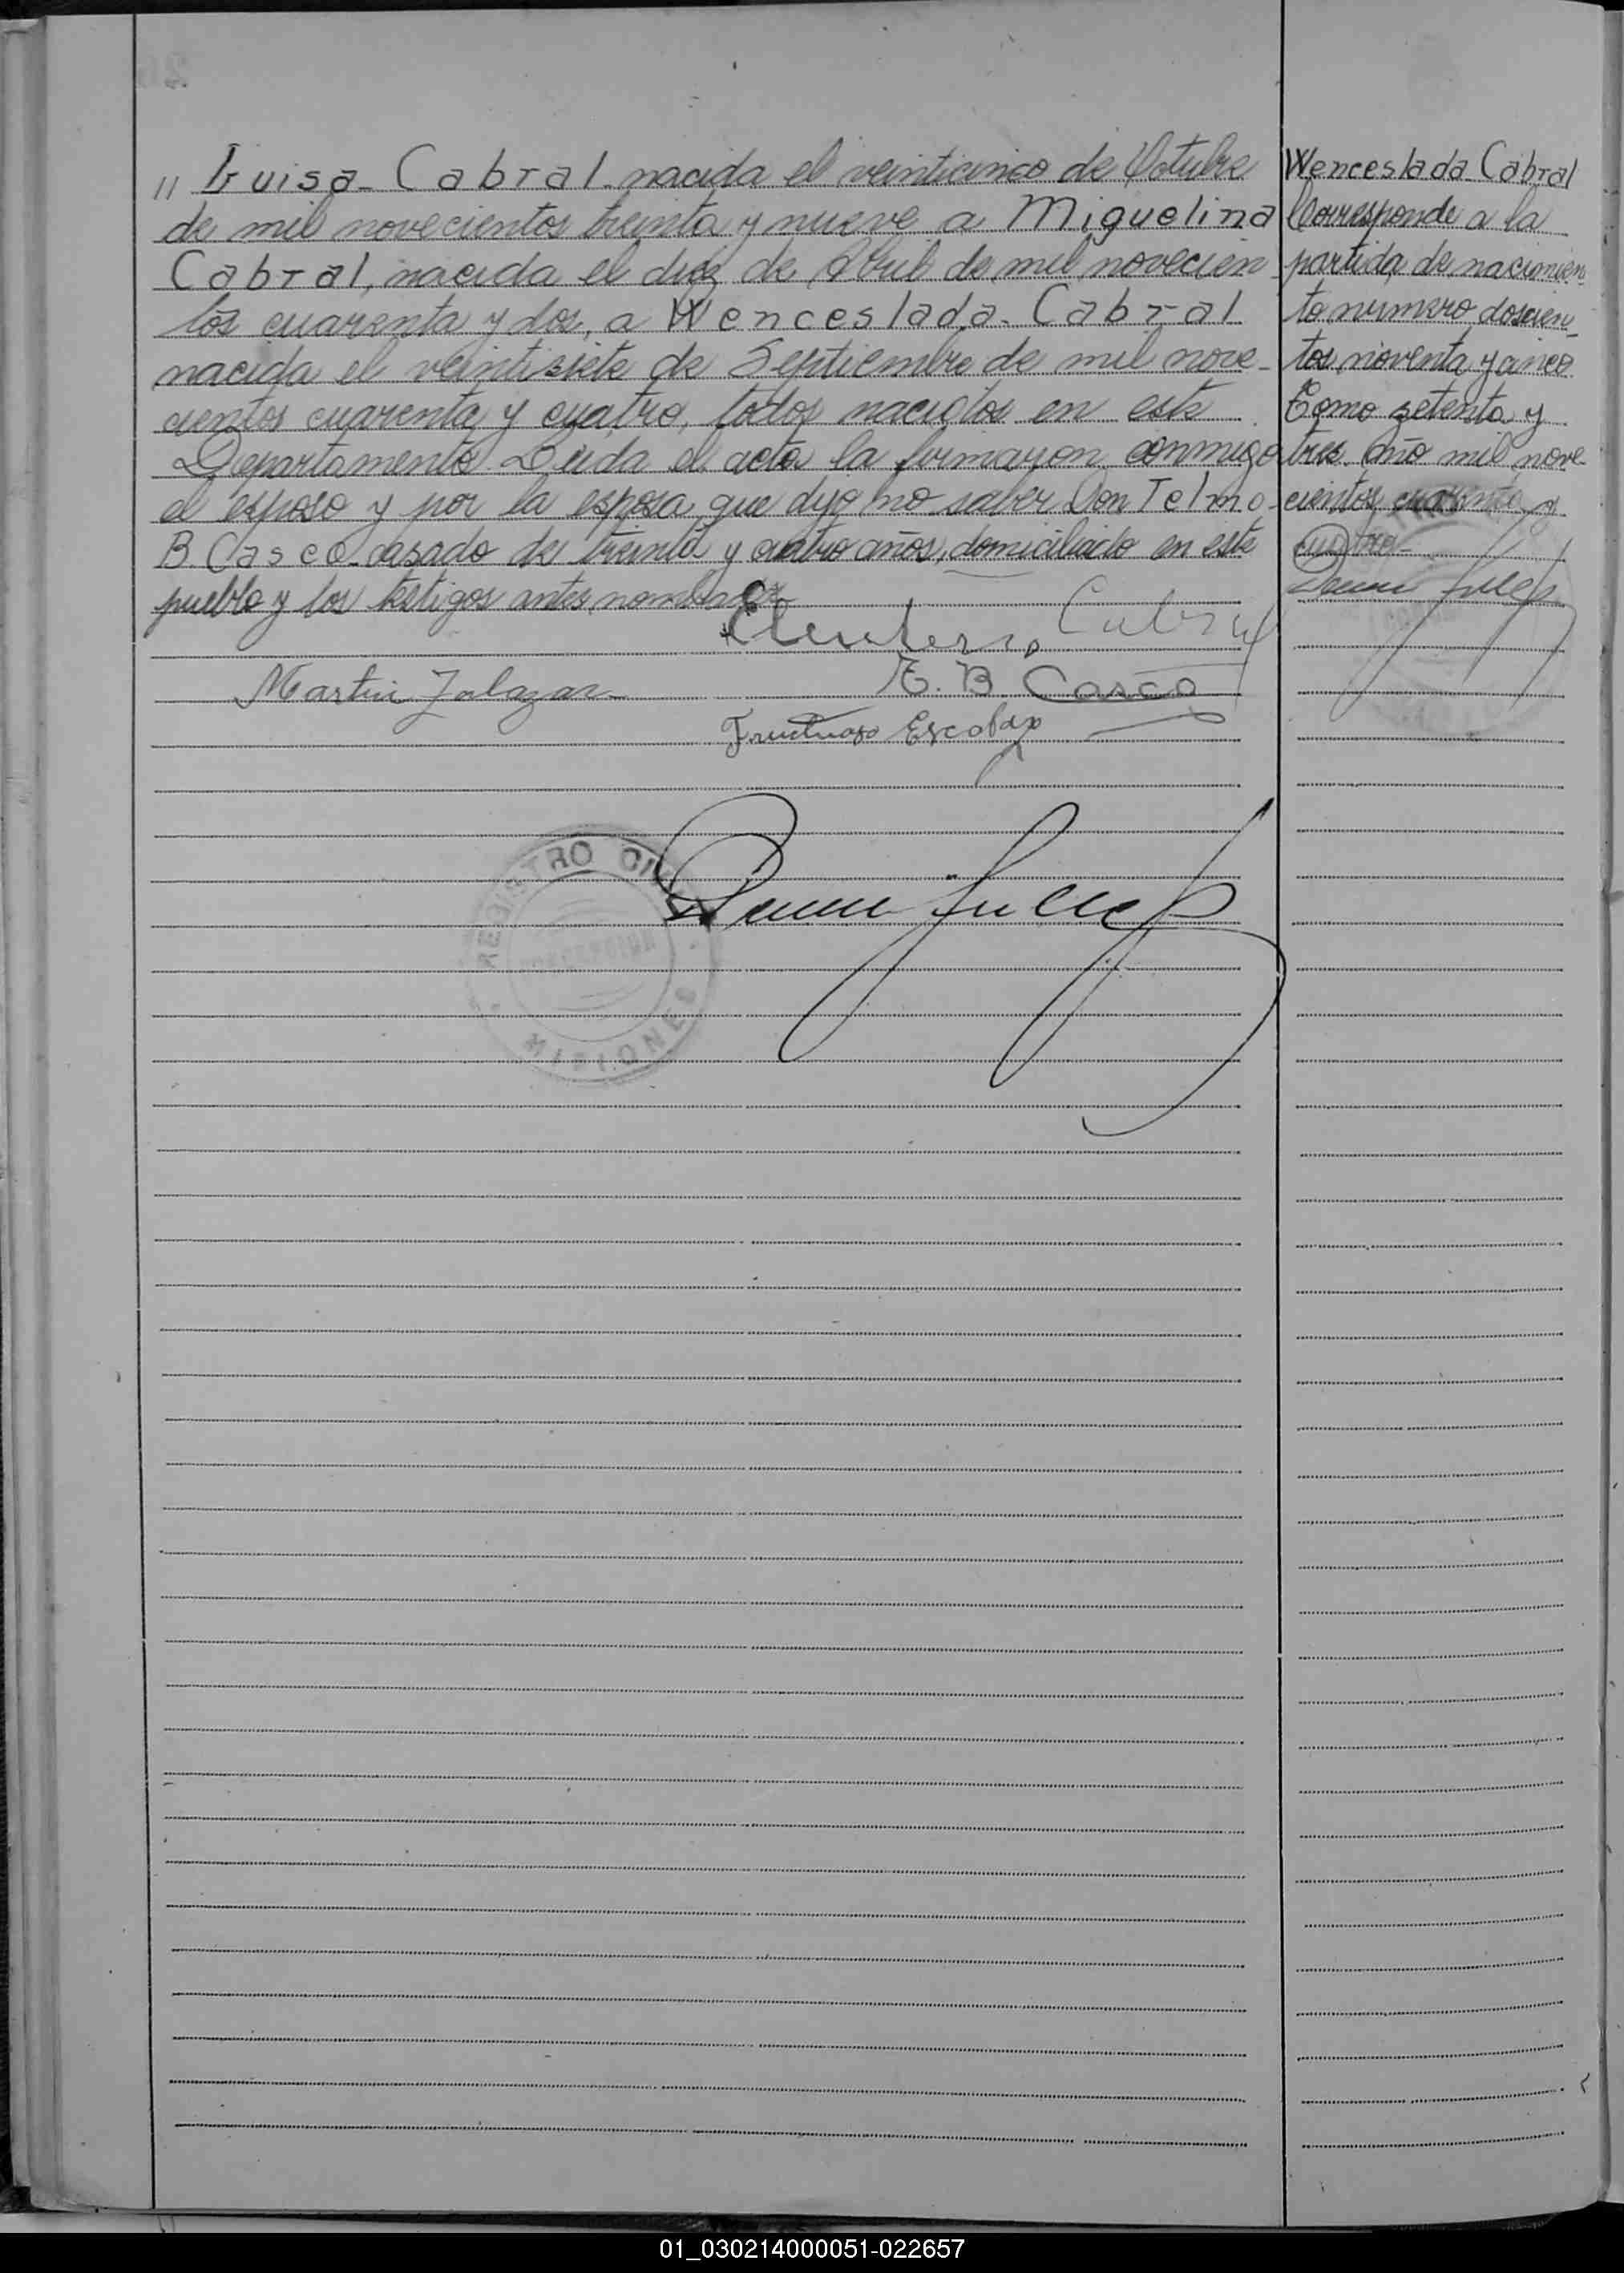 " Luisa - Cabral - nacida el veinticinco de Octubre
de mil novecientos treinta y nueve a Miguelina
Cabral, nacida el diez de Abril de mil novecien
tos cuarenta y dos, a Wenceslada - Cabral
nacida el veintisiete de Septiembre de mil nove-
cientos cuarenta y cuatro, todos nacidos en este
Departamento. Leida el acta la firmaron conmigo
el esposo y por la esposa que dijo no saber Don Telmo
B. Casco casado de treinta y cuatro años, domiciliado en este
pueblo y los testigos antes nombrados
Eleuterio Cabral
T. B. Casco
Martin Zalazar
Fructuoso Escobar
REGISTRO CIVIL
MISIONES
Wenceslada Cabral
Corresponde a la
partida de nacimien
to numero doscien_
tos noventa y cinco
Tomo setenta y
tres. Año mil nove-
cientos cuarenta y
cuatro-
01_030214000051-022657